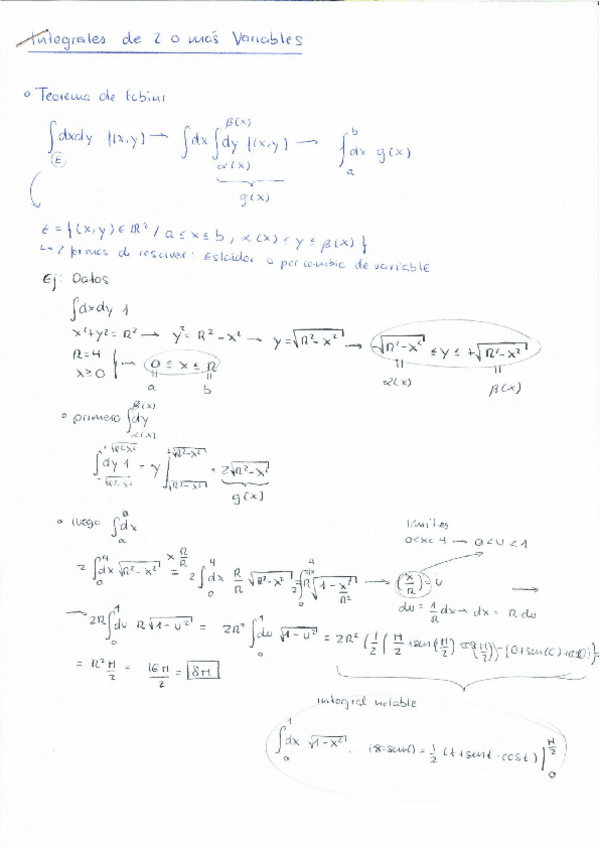 Integrales de 2 o más Variables
Teorema de Fubini
∫dxdy f(x,y) → ∫dx ∫dy f(x,y) → ∫dx g(x)
E α(x) β(x) a b
g(x)
E = {(x,y) ∈ ℝ² / a ≤ x ≤ b, α(x) ≤ y ≤ β(x)}
↳ 2 formas de resolver: Estándar o por cambio de variable
Ej: Datos
∫dxdy 1
x²+y²=R² → y²=R²-x² → y=√(R²-x²) → -√(R²-x²) ≤ y ≤ +√(R²-x²)
R=4
x≥0 → 0 ≤ x ≤ R
a b α(x) β(x)
primero ∫dy
α(x) β(x)
∫dy 1 = y | = 2√(R²-x²)
g(x)
luego ∫dx
límites
0<x<4 → 0<u<1
2∫₀⁴dx √(R²-x²) = 2∫₀⁴dx R/R √(R²-x²) = → (x/R)=u
du = 1/R dx → dx = R du →
→ 2R∫₀¹du R√(1-u²) = 2R²∫₀¹du √(1-u²) = 2R²
= R²π/2 = 16π/2 = 8π
integral notable
∫₀¹dx √(1-x²) = 1/2 (t+sint·cost) |₀^(π/2)